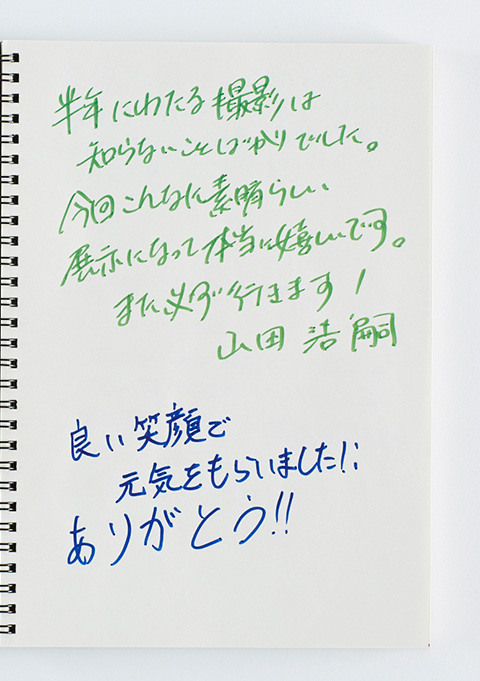 半年にわたる撮影は
知らないことばかりでした。
今回こんなに素晴らしい
展示になって本当に嬉しいです。
また必ず行きます！
山田 浩嗣
良い笑顔で
元気をもらいました！！
ありがとう!!